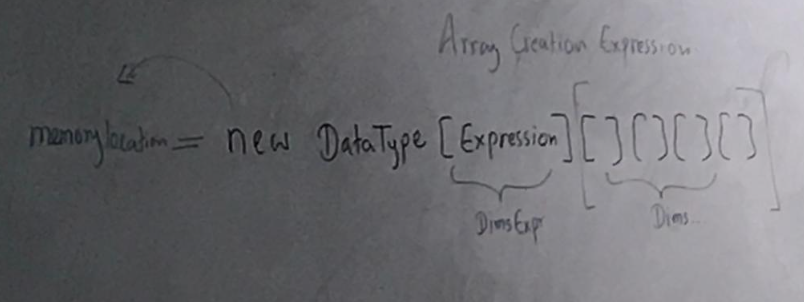 Array Creation Expression
memorylocation = new DataType [Expression] [[ ] [ ] [ ] [ ]]
DimsExpr Dims..